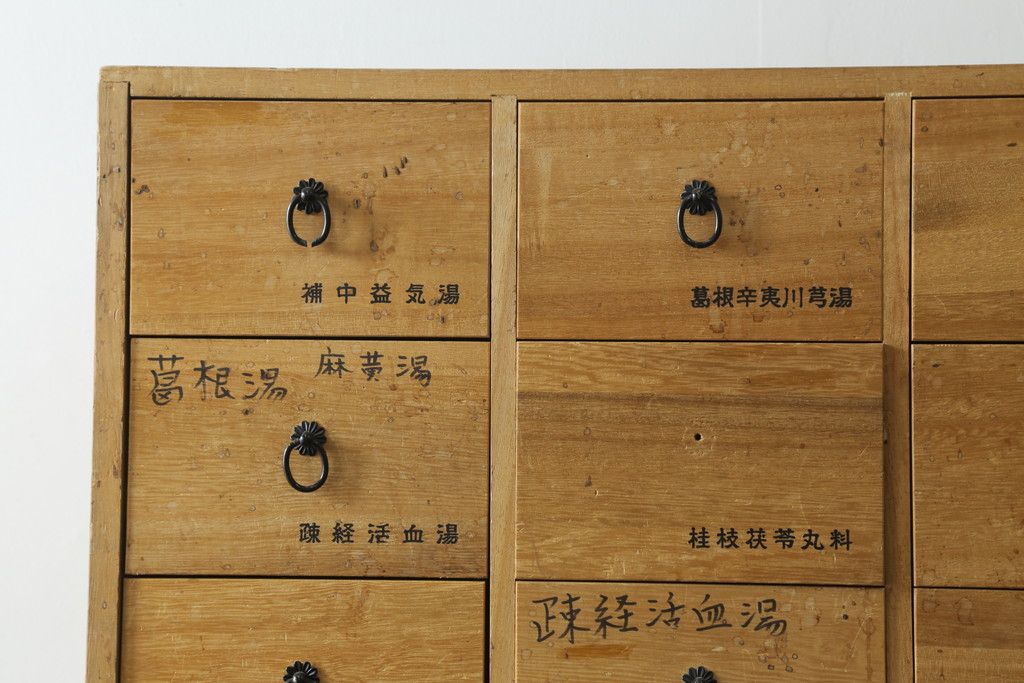 補中益気湯
葛根辛夷川芎湯
葛根湯 麻黄湯
疎経活血湯
桂枝茯苓丸料
疎経活血湯